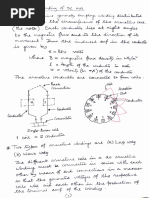 winding of DC m/c
m/c usually employ winding distributed
the circumference of the armature core
(the rotor) Each conductor lies at right angles
to the magnetic flux and to the direction of its
movement. Thus the induced emf in the conductor
is given by
e = Blv volts
where B = magnetic flux density in wb/m²
l = length of the conductor in mtr
v = velocity (in m/s) of the conductor
The armature conductors are connected to form coils
Conductor
Conductor
Single turn
coil
Conductor
* Two types of armature winding are (a) Lap winding
(b) wave winding
The different armature coils in a dc armature
winding must be connected in series with each
other by means of end connection in a manner
so that the generated voltage of the respective
coils will aid each other in the production of
the terminal emf of the winding.